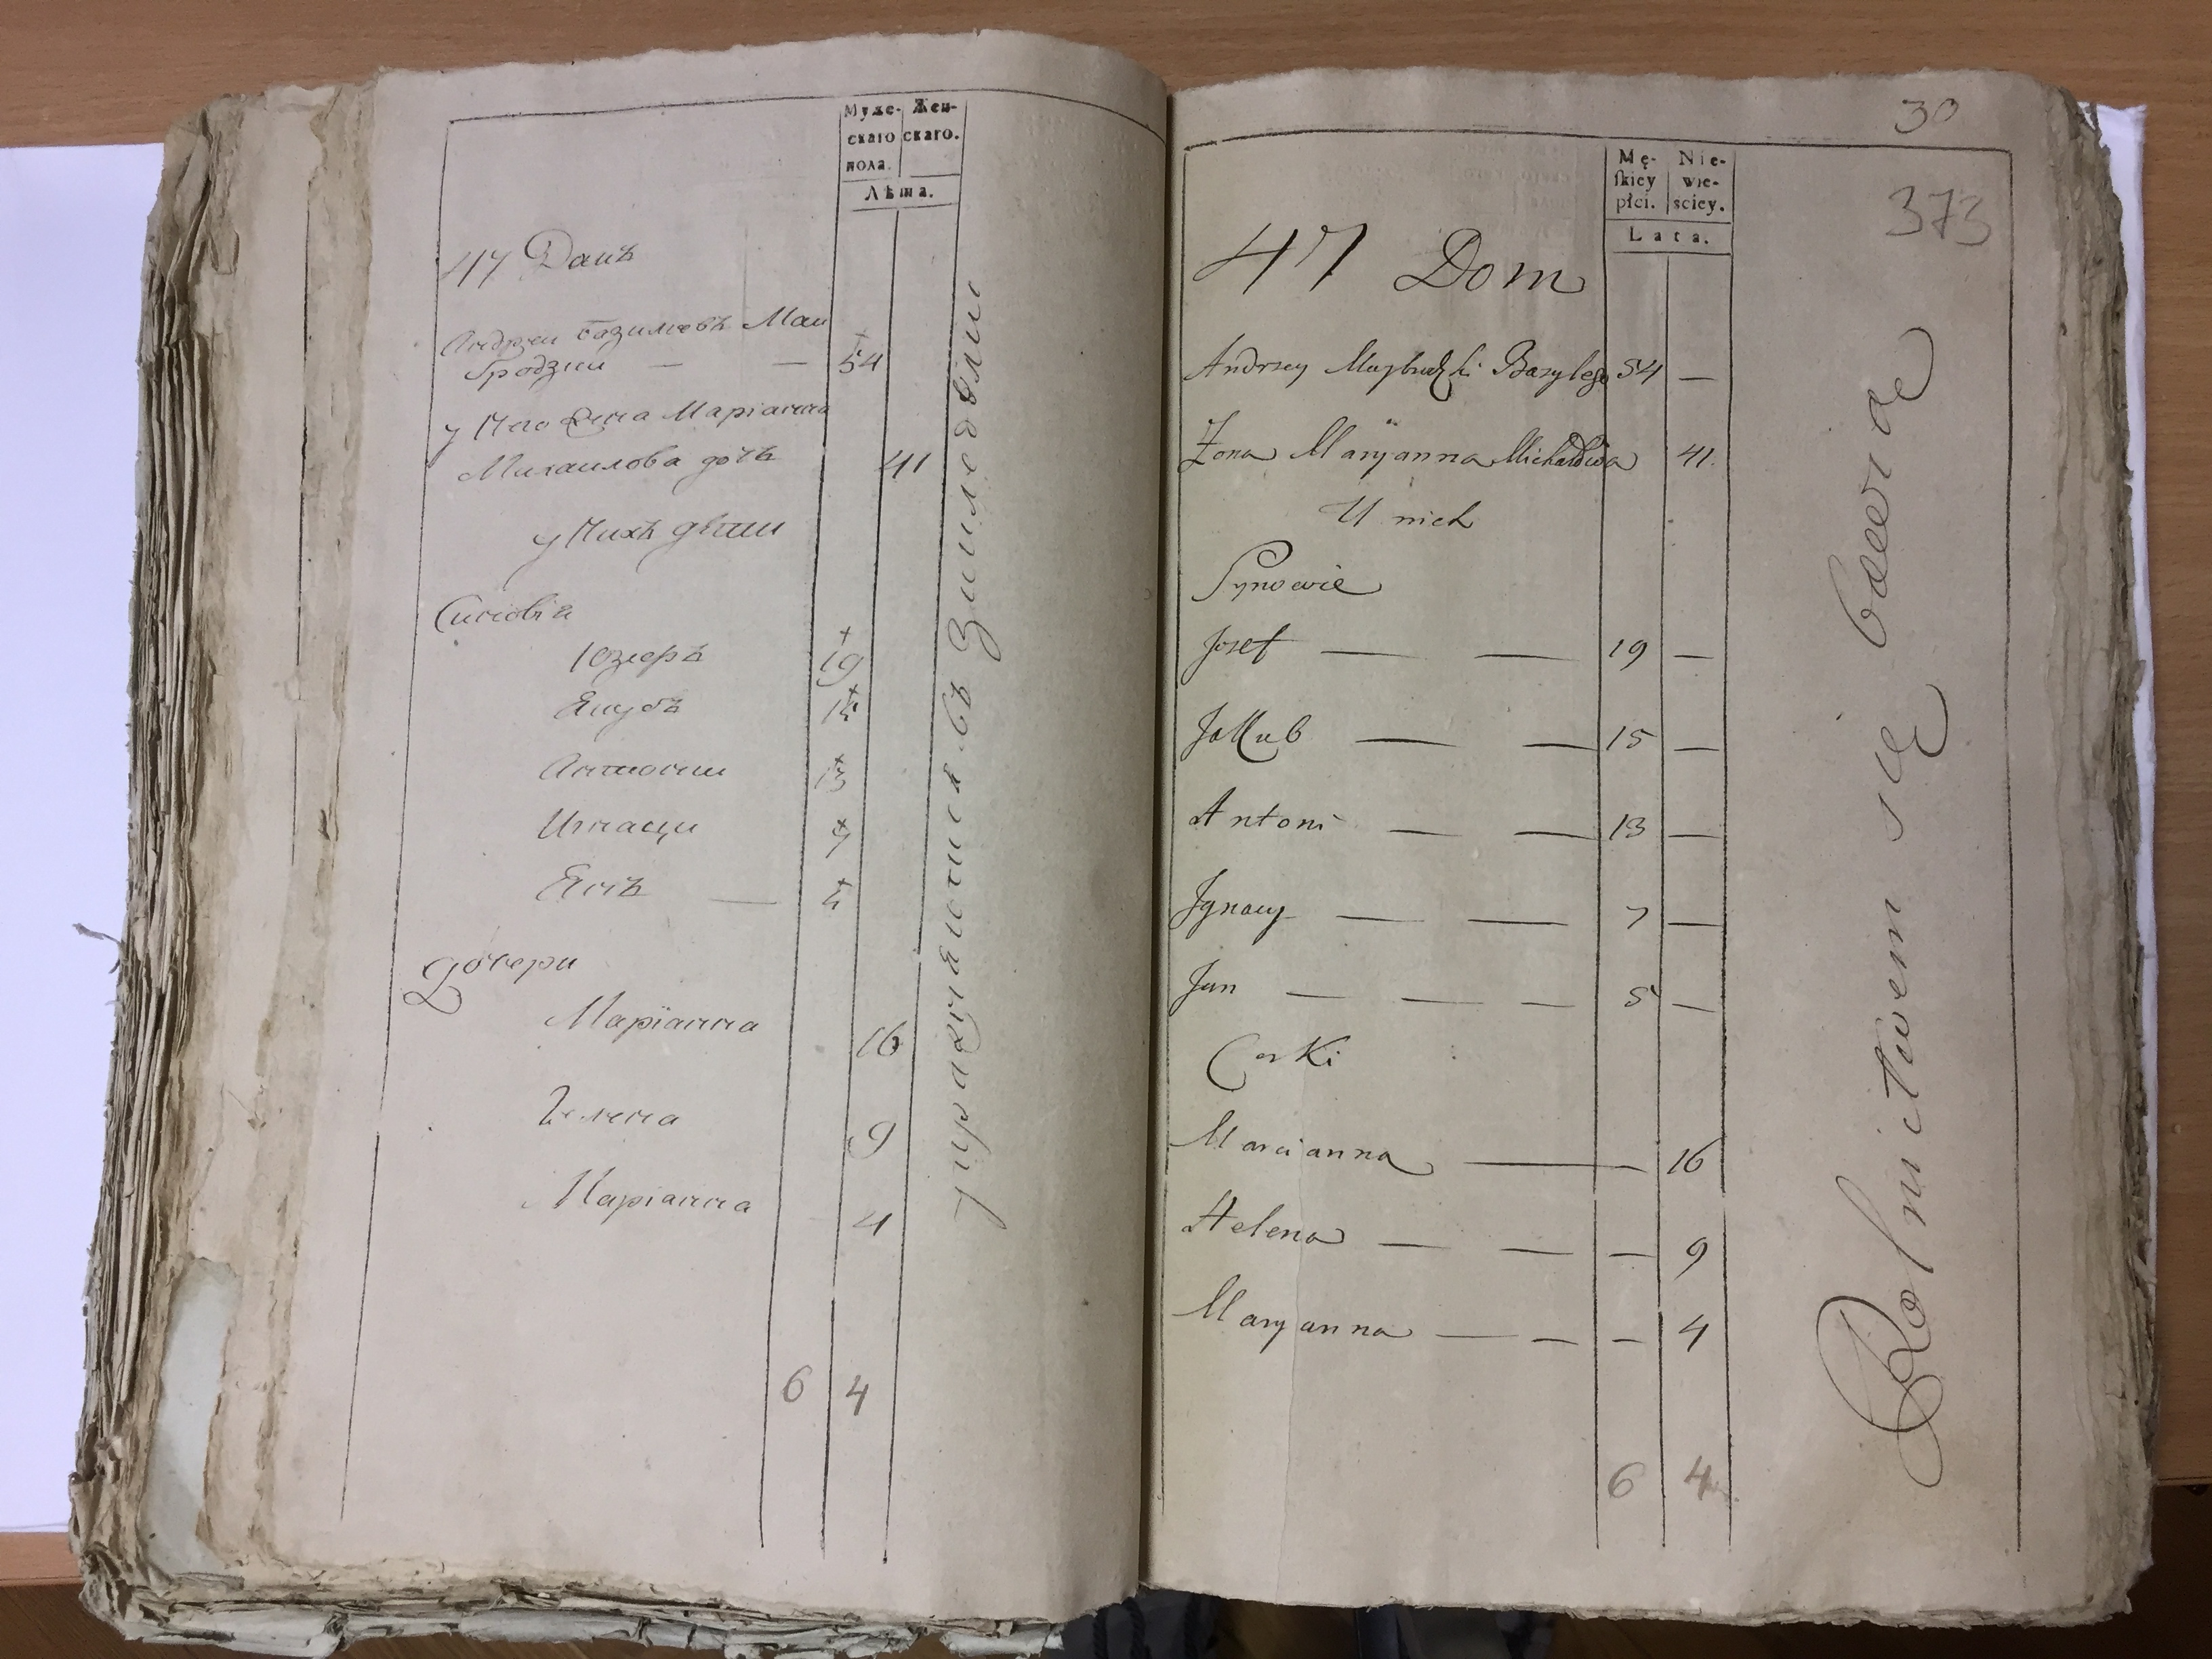 Муже- Жен-
скаго скаго.
пола.
Лѣта.
47 Домъ
Андрей Базилювъ Май
бродзки — — 54
у Него Жена Маріанна
Михаилова дочь 41
у Нихъ дѣти
Синовія
Юзефъ 19
Якубъ 15
Антони 13
Игнаци 7
Янъ — 5
дочери
Маріанна 16
Гелена 9
Маріанна 4
6 4
упражняются въ Земледѣлии
30
373
Mę- Nie-
skiey wie-
płci. sciey.
Lata.
47 Dom
Andrzey Maybrodzki Bazylego 54 —
Żona Maryanna Michałowa 41.
U nich
Synowie
Jozef — — 19 —
Jakub — — 15 —
Antoni — — 13 —
Jgnacy — — 7 —
Jan — — — 5 —
Corki
Marcianna — — 16
Helena — — — 9
Maryanna — — — 4
6 4
Rolnictwem się bawią